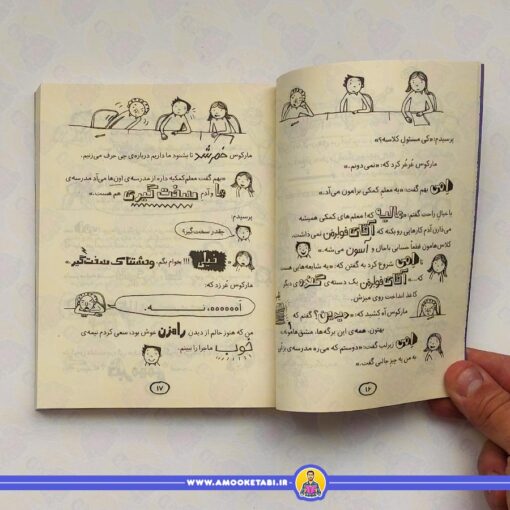 پرسیدم: «کی مسئول کلاسه؟»
مارکوس غرغر کرد که: «نمی‌دونم.»
امی بهم گفت: «یه معلم کمکی برامون می‌آد.»
با خیال راحت گفتم: «عالیه که! معلم‌های کمکی همیشه
می‌ذارن آدم کارهایی رو بکنه که آقای فولرفن نمی‌ذاشت.
کلاس‌هامون قطعاً حسابی باحال و آسون می‌شه.»
امی شروع کرد به گفتن که: «یه شایعه‌هایی هست
که...» آقای فولرفن یک دسته‌ی گنده‌ی دیگه
کاغذ انداخت روی میزش.
مارکوس آه کشید که: «دیدین؟ گفتم که
بهتون. همه‌ی این برگه‌ها، مشق‌هامونه!»
امی زیرلب گفت: «دوستم که می‌ره مدرسه‌ی
به من یه چیز جالبی گفت.»
۱۶
مارکوس خم شد تا بشنود ما داریم درباره‌ی چی حرف می‌زنیم.
«بهم گفت معلم کمکیه داره از مدرسه‌ی اون‌ها می‌آد مدرسه‌ی
ما و آدم سخت‌گیری هم هست.»
پرسیدم:
چقدر سخت‌گیر؟
خیلی!!! بخوام بگم، وحشتناک سخت‌گیر
مارکوس غر زد که:
آه‌ه‌ه‌ه‌ه‌ه، نـــــه.
من که هنوز حالم از دیدن رامزن خوش بود، سعی کردم نیمه‌ی
خوب ماجرا را ببینم.
۱۷
WWW.AMOOKETABI.IR